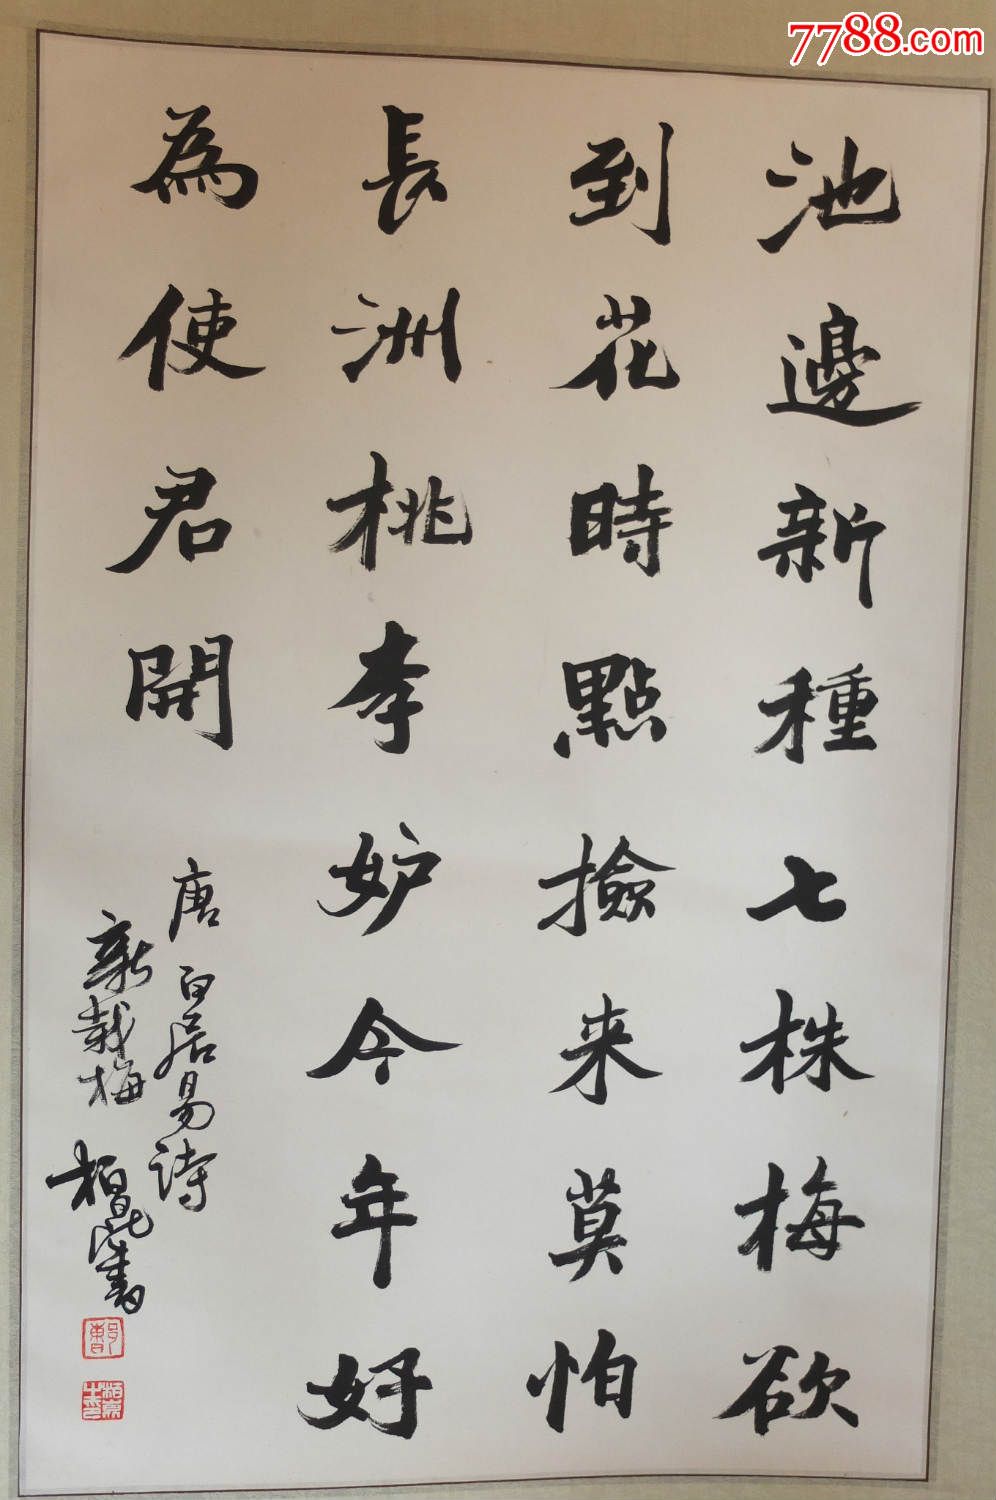 7788.com
池邊新種七株梅欲
到花時點撿来莫怕
長洲桃李妒今年好
為使君開
唐白居易詩
新栽梅